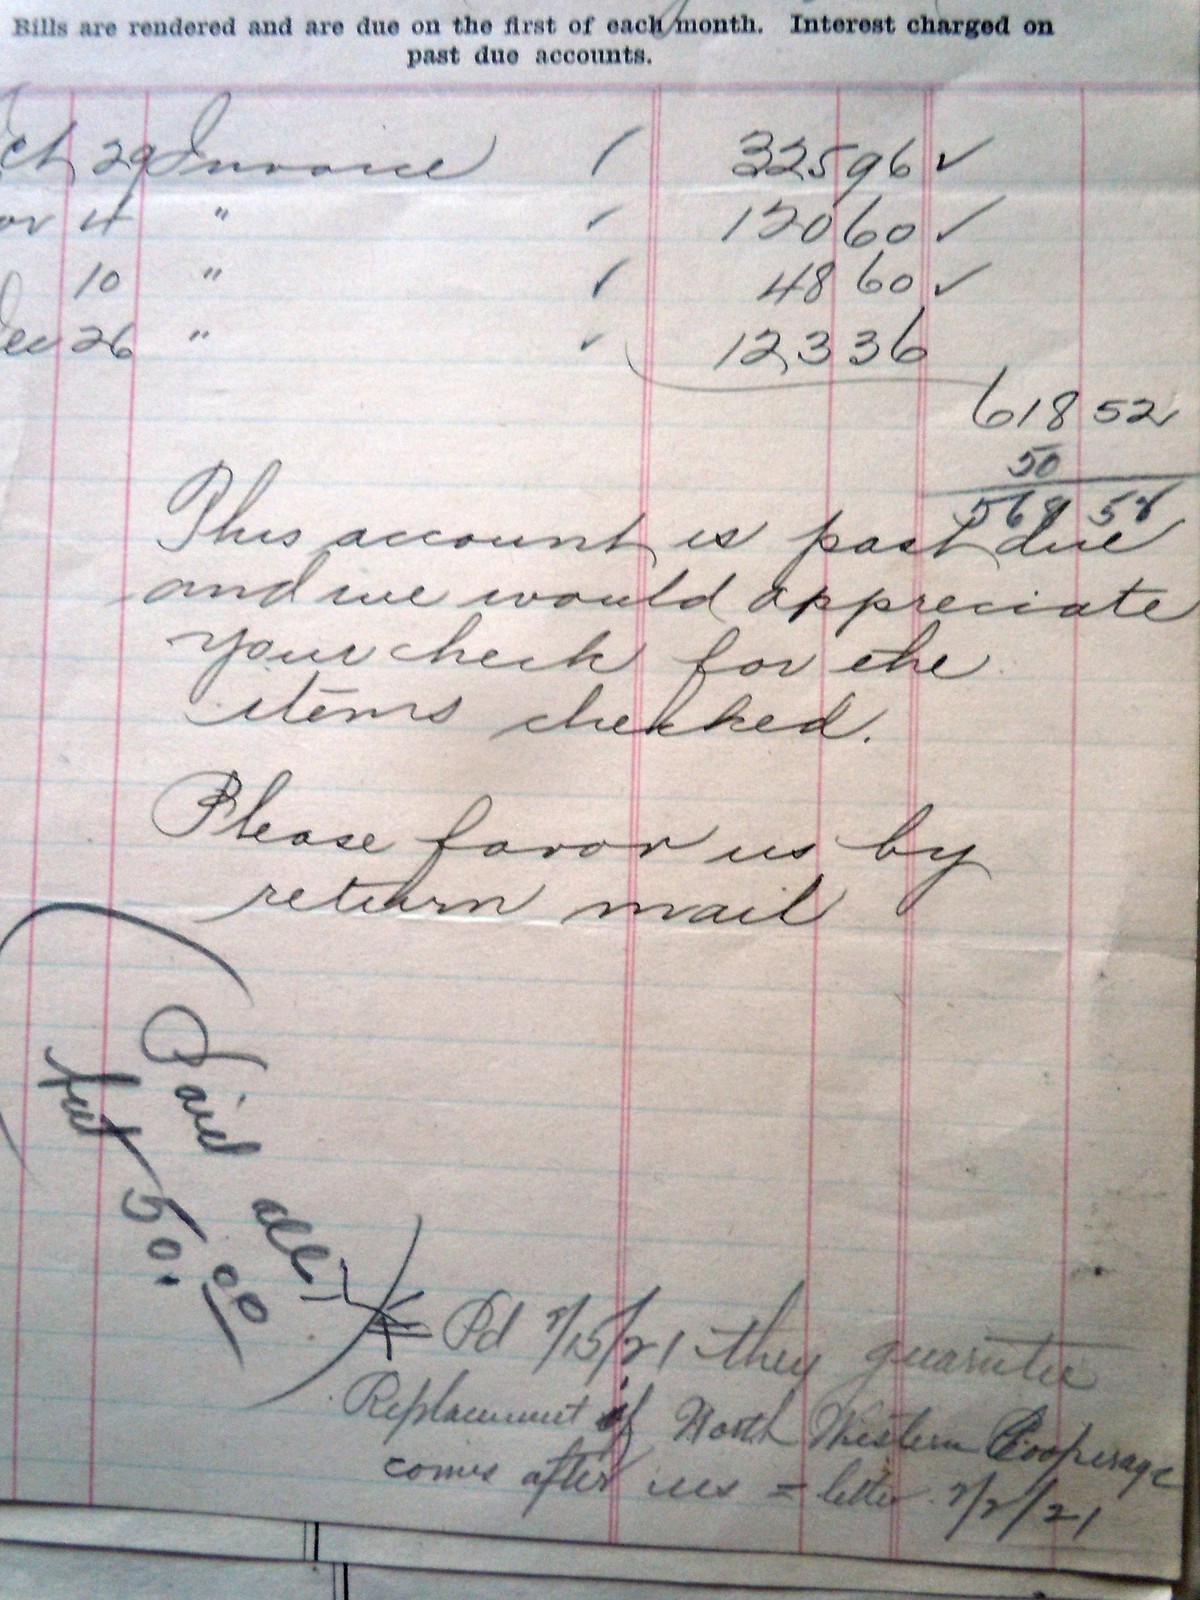 Bills are rendered and are due on the first of each month. Interest charged on
past due accounts.
ct 29 Invoice 325 96 ✓
ov 4 " 120 60 ✓
10 " 48 60 ✓
Dec 26 " 123 36
618 52
50
568 52
This account is past due
and we would appreciate
your check for the
items checked.
Please favor us by
return mail
Paid all
but 50.00
Pd 2/15/21 they guarantee
Replacement if North Western Cooperage
comes after us = letter 2/2/21